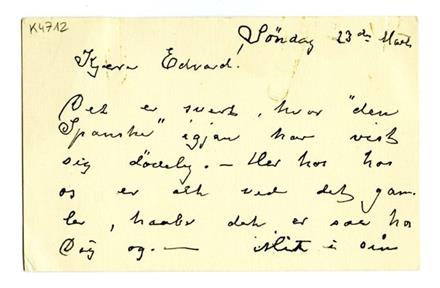 K4712
Søndag 23de Marts
Kjære Edvard!
Det er svert, hvor "den
Spanske" igjen har vist
sig dødely. — Her hos hos
os er alt ved det gam-
le, haaber det er saa hos
Dig og. — Mit i din